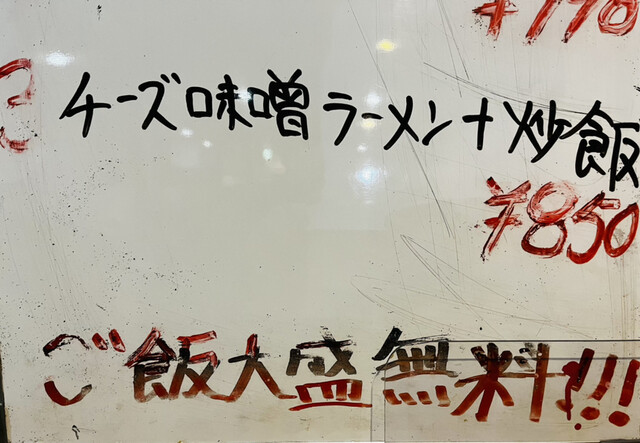 チーズ味噌ラーメン+炒飯
¥850
ご飯大盛無料!!!